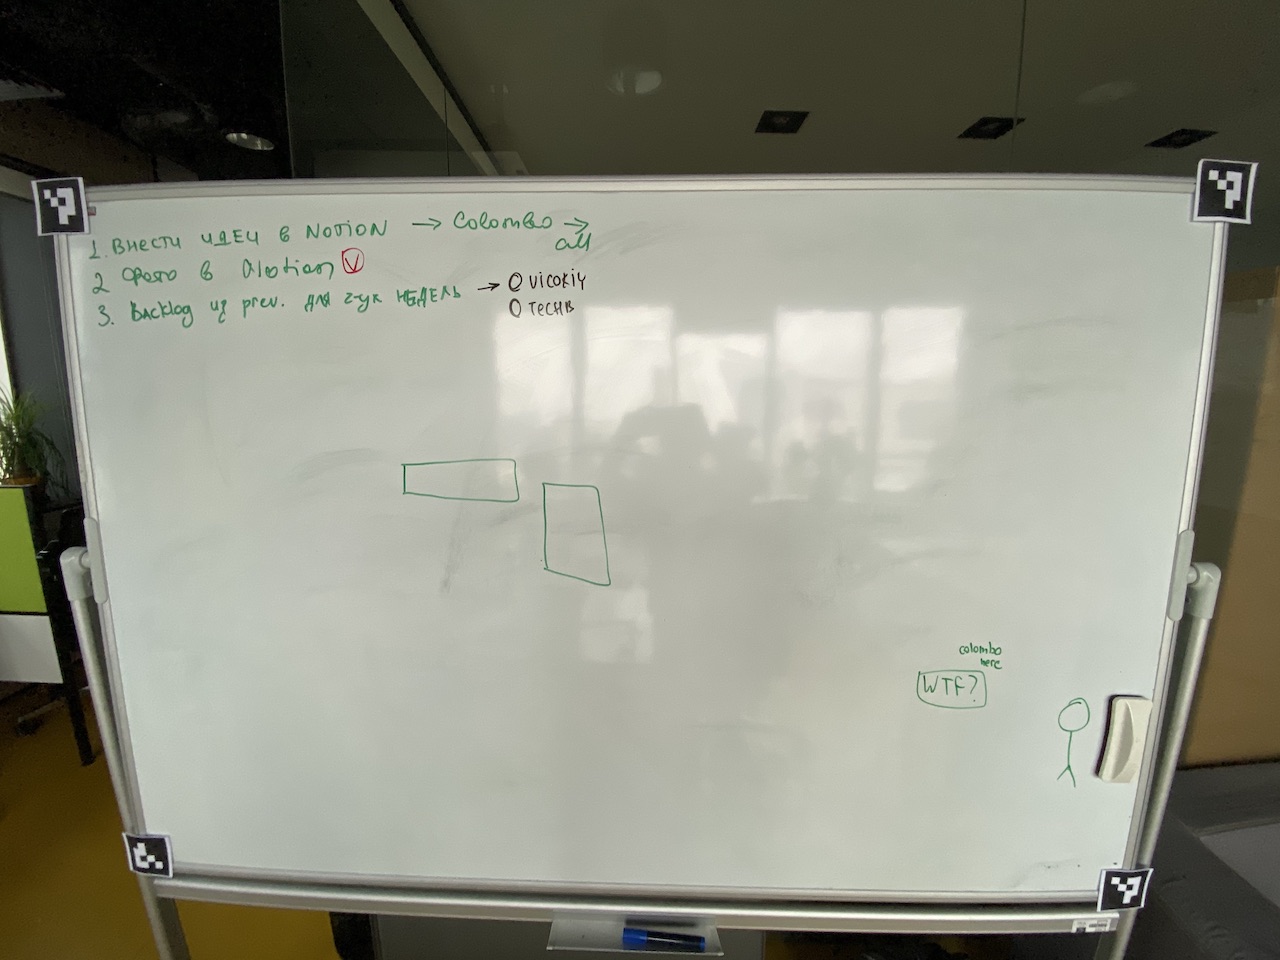 1. Внести идеи в Notion → Colombo →
all
2 Фото в Notion V
3. Backlog из prev. для 2-ух недель → O VICOKIY
O TECHB
colombo
here
WTF?